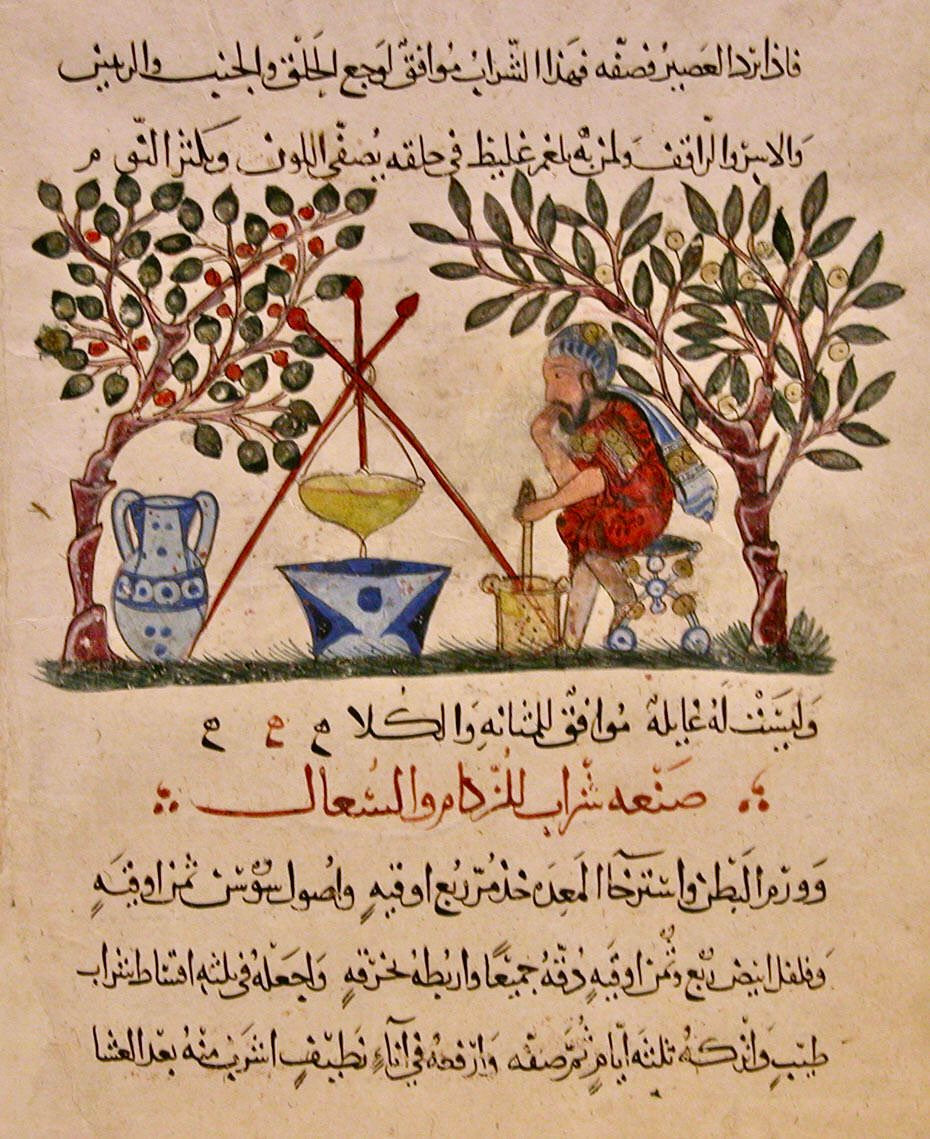 فاذا برد العصير فصفه فهذا الشراب موافق لوجع الحلق والجنب والريين
والاسر والراقف ولمن به بلغم غليظ في حلقه يصفي اللون ويكثر النوم
وليست له غايلة موافق للمثانه والكلا
صنعه شراب للزكام والسعال
وورم البطن واسترخا المعده خذ مر ربع اوقيه واصول سوسن ثمن اوقيه
وفلفل ابيض ربع وثمن اوقيه دقه جميعا واربطه بخرقه واجعله في ثلثه اقساط شراب
طيب واتركه ثلثه ايام ثم صفه وارفعه في آناء نظيف اشرب منه بعد العشا